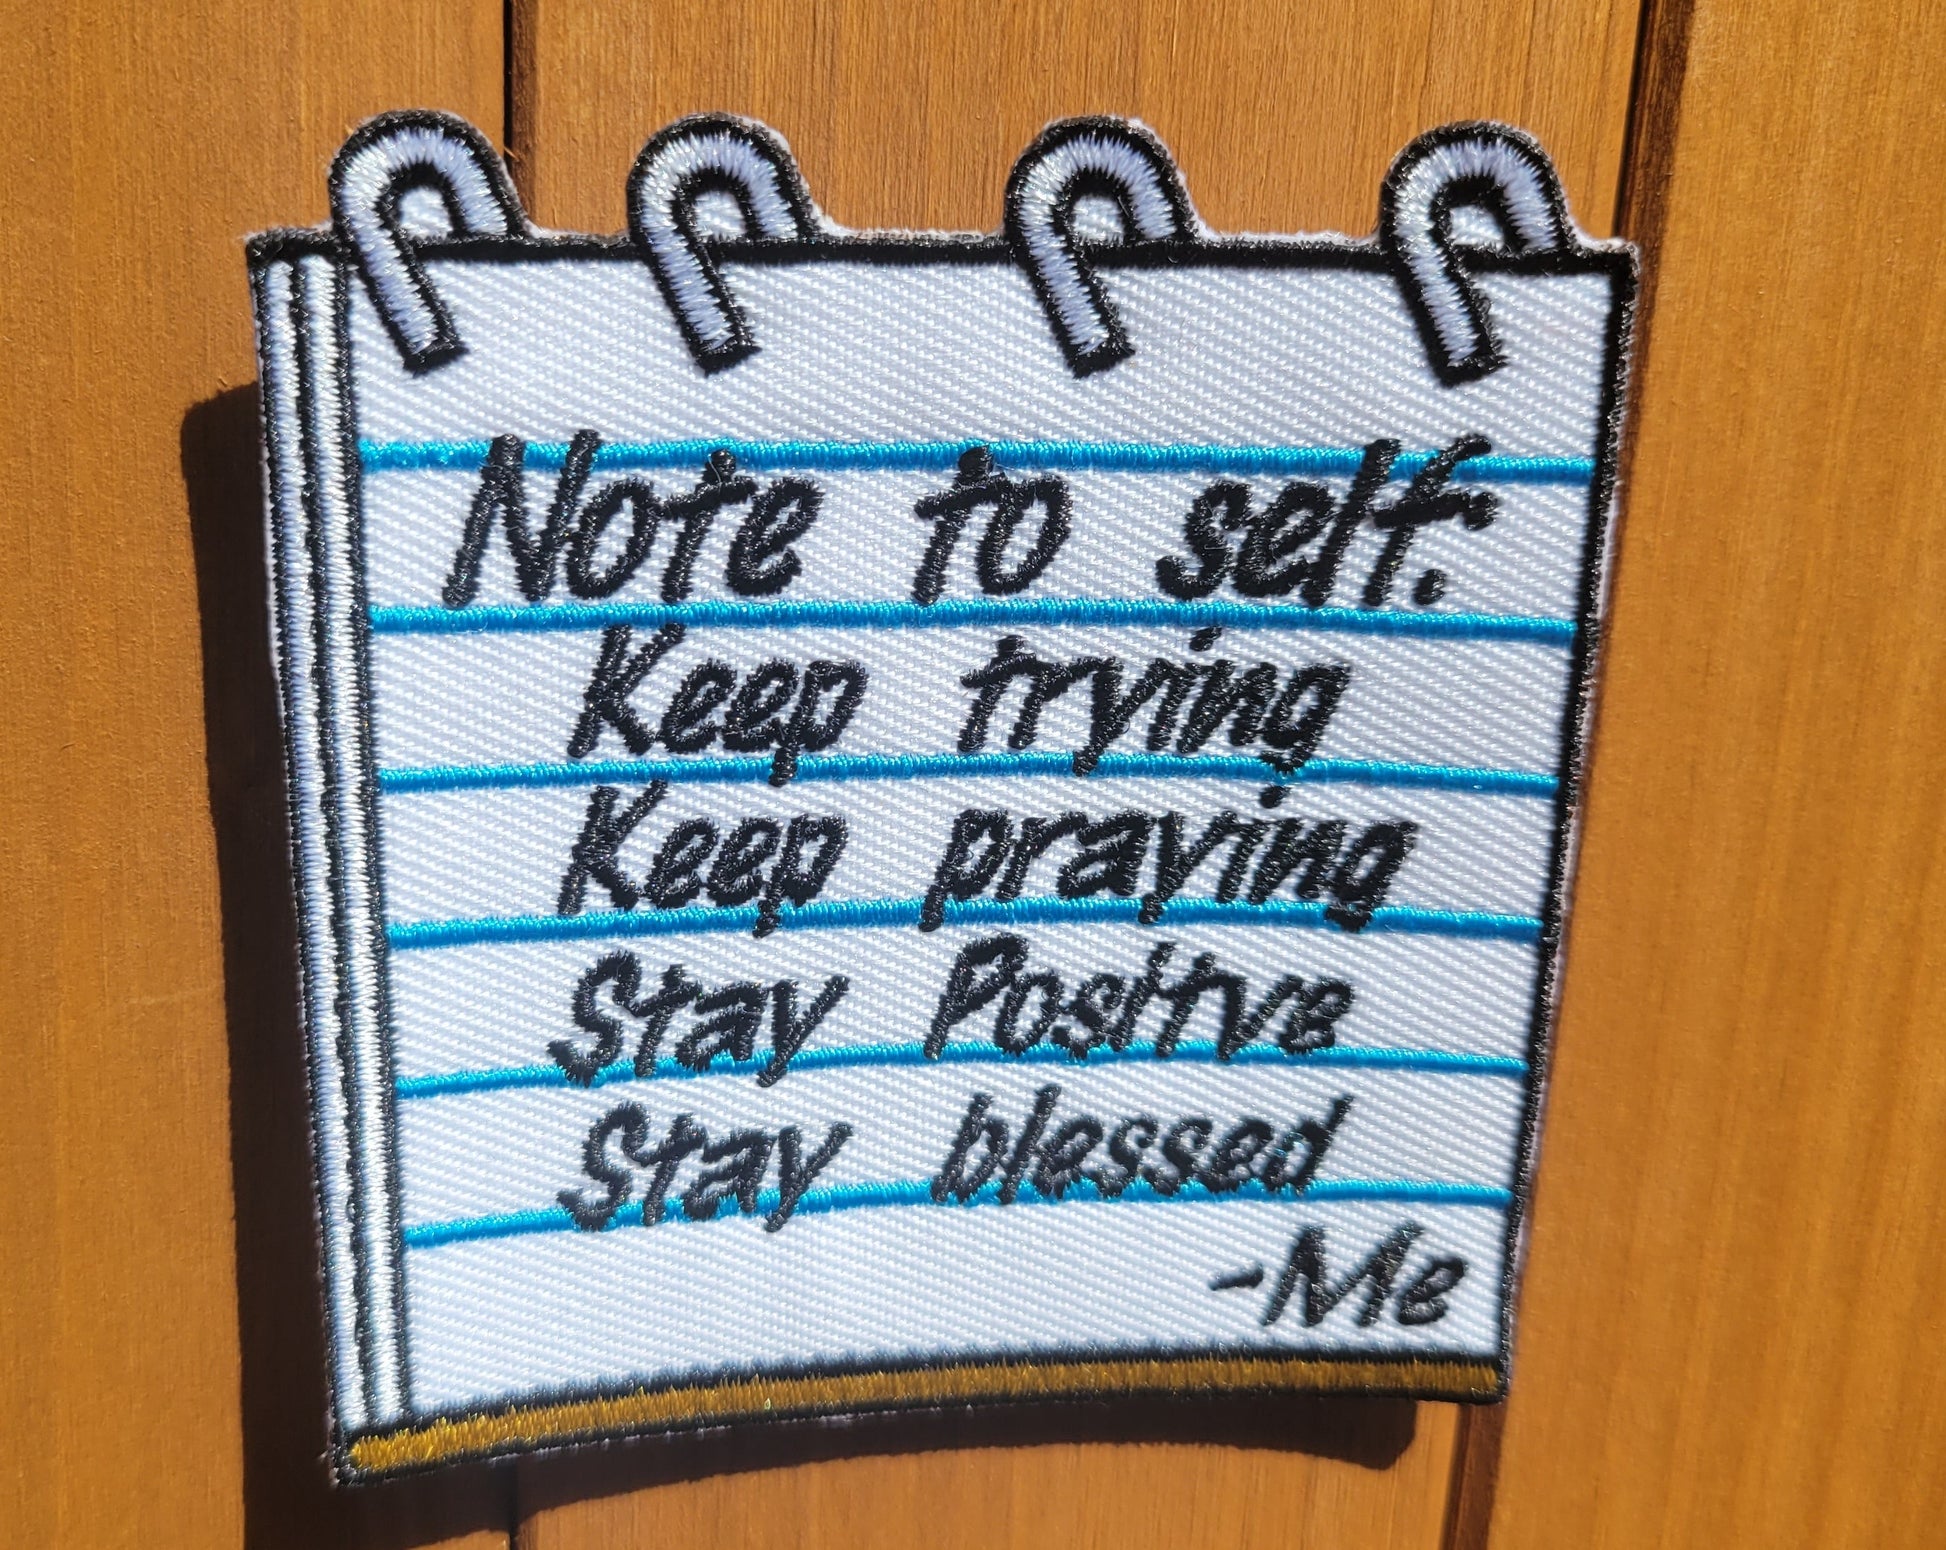 Note to self:
Keep trying
Keep praying
Stay Positve
Stay blessed
-Me